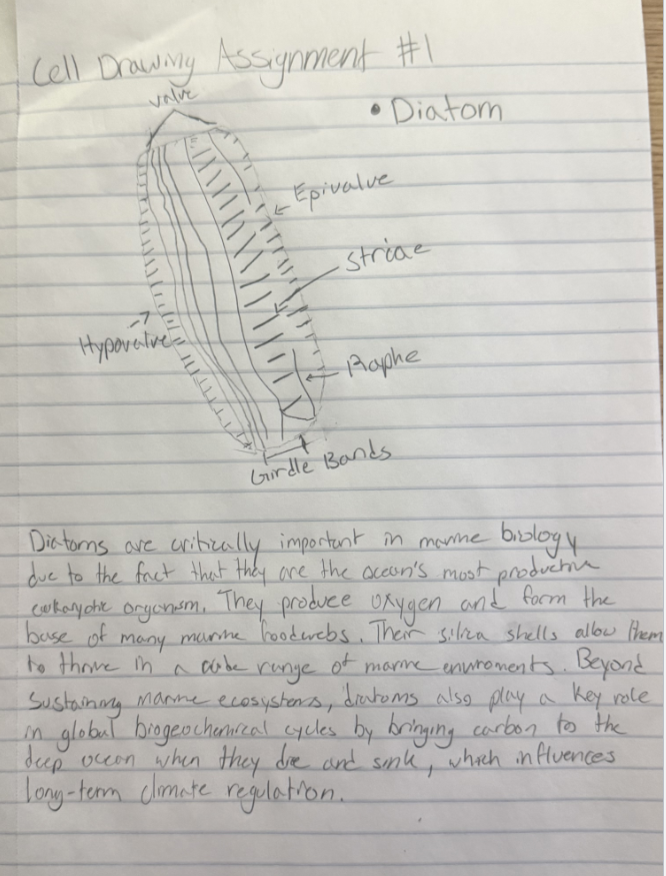 Cell Drawing Assignment #1
valve
• Diatom
Epivalve
Striae
Hypovalve
Raphe
Girdle Bands
Diatoms are critically important in marine biology
due to the fact that they are the ocean's most productive
eukaryotic organism. They produce oxygen and form the
base of many marine foodwebs. Their silica shells allow them
to thrive in a wide range of marine enviroments. Beyond
sustaining marine ecosystems, diatoms also play a key role
in global biogeochemical cycles by bringing carbon to the
deep ocean when they die and sink, which influences
long-term climate regulation.